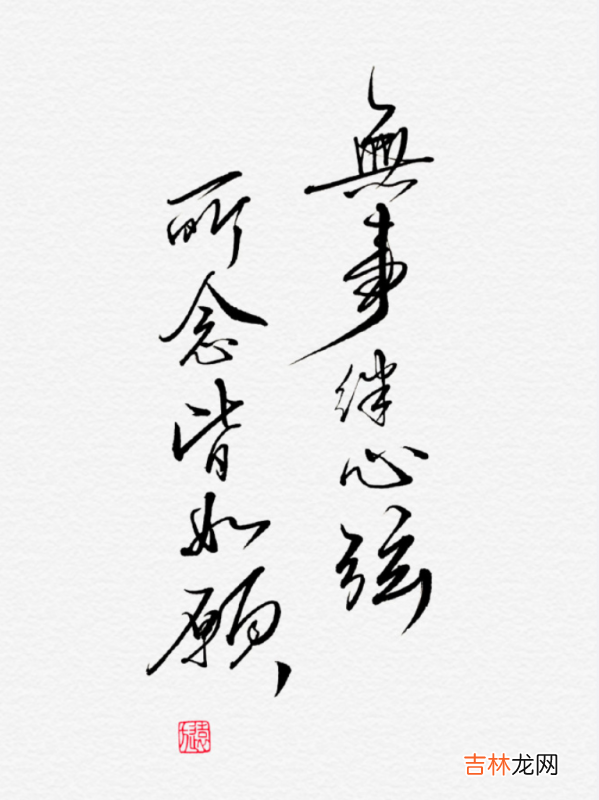 無事絆心弦
所念皆如願
吉林龙网